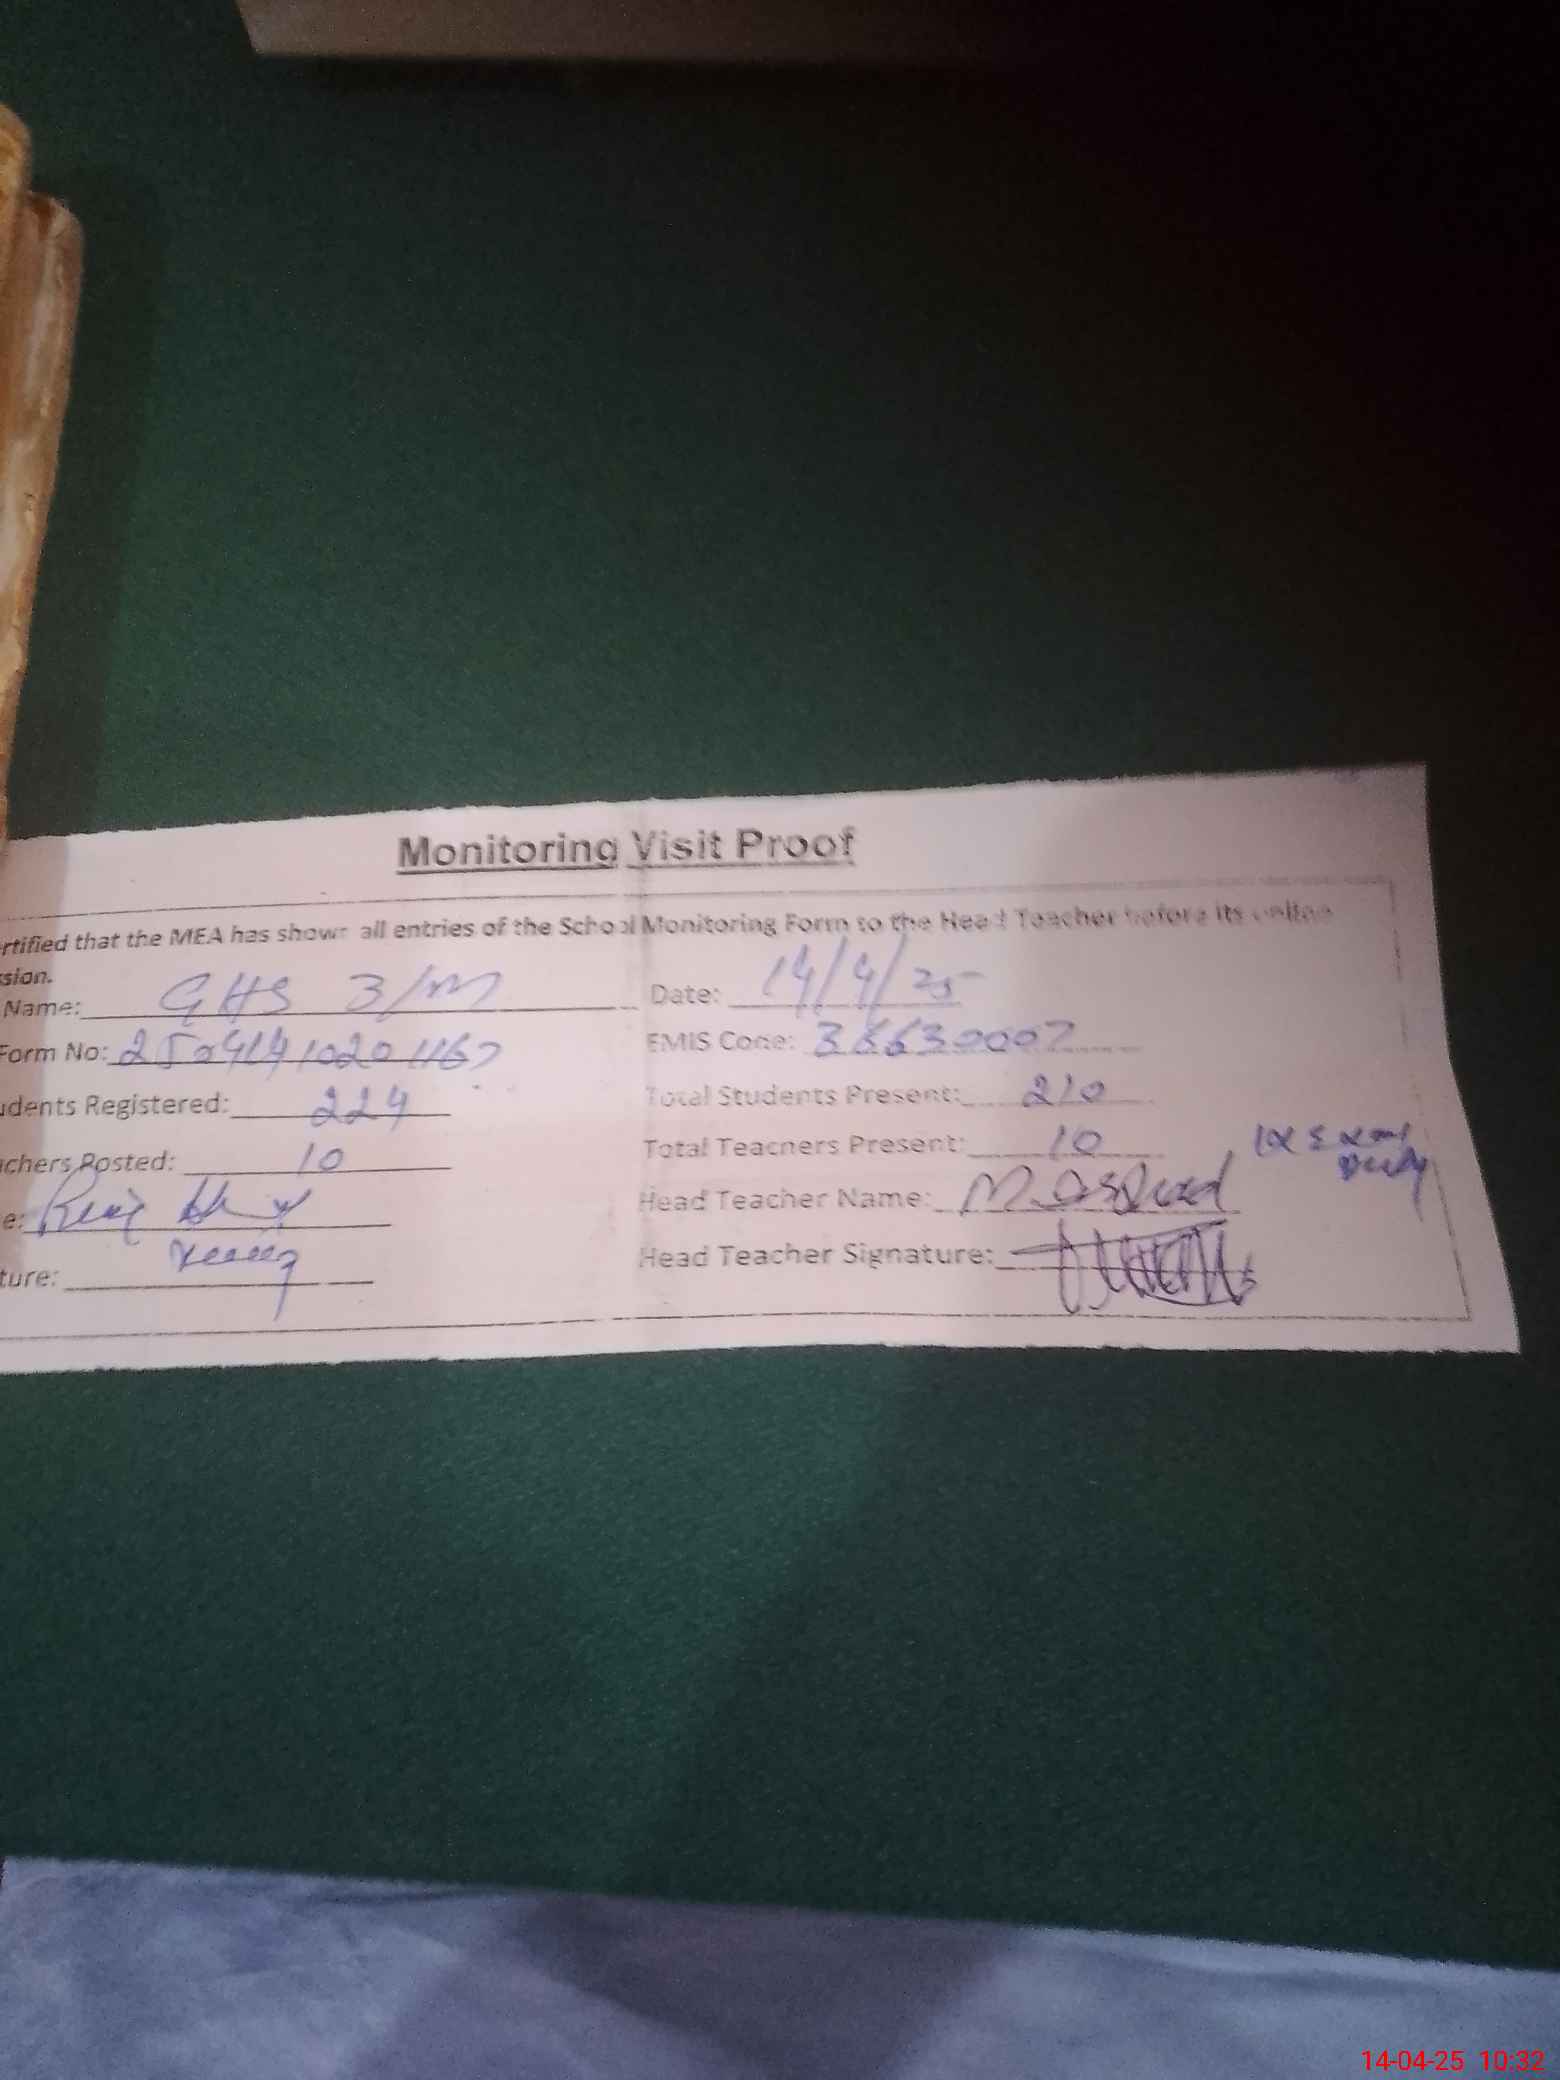 Monitoring Visit Proof
rtified that the MEA has shown all entries of the School Monitoring Form to the Head Teacher before its online
sion.
Name: GHS 3/M Date: 14/4/25
Form No: EMIS Code: 36630007
udents Registered: 224 Total Students Present: 210
chers Posted: 10 Total Teachers Present: 10
e: Head Teacher Name: M. Arshad
ture: Head Teacher Signature:
14-04-25 10:32